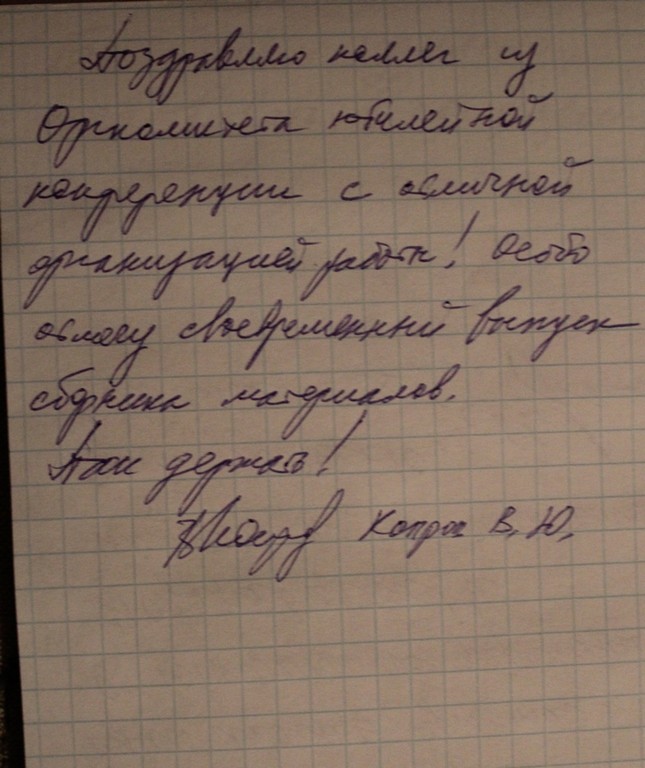 Поздравляю коллег из
Оргкомитета юбилейной
конференции с отличной
организацией работы! Особо
отмечу своевременный выпуск
сборника материалов.
Так держать!
В. Ю.